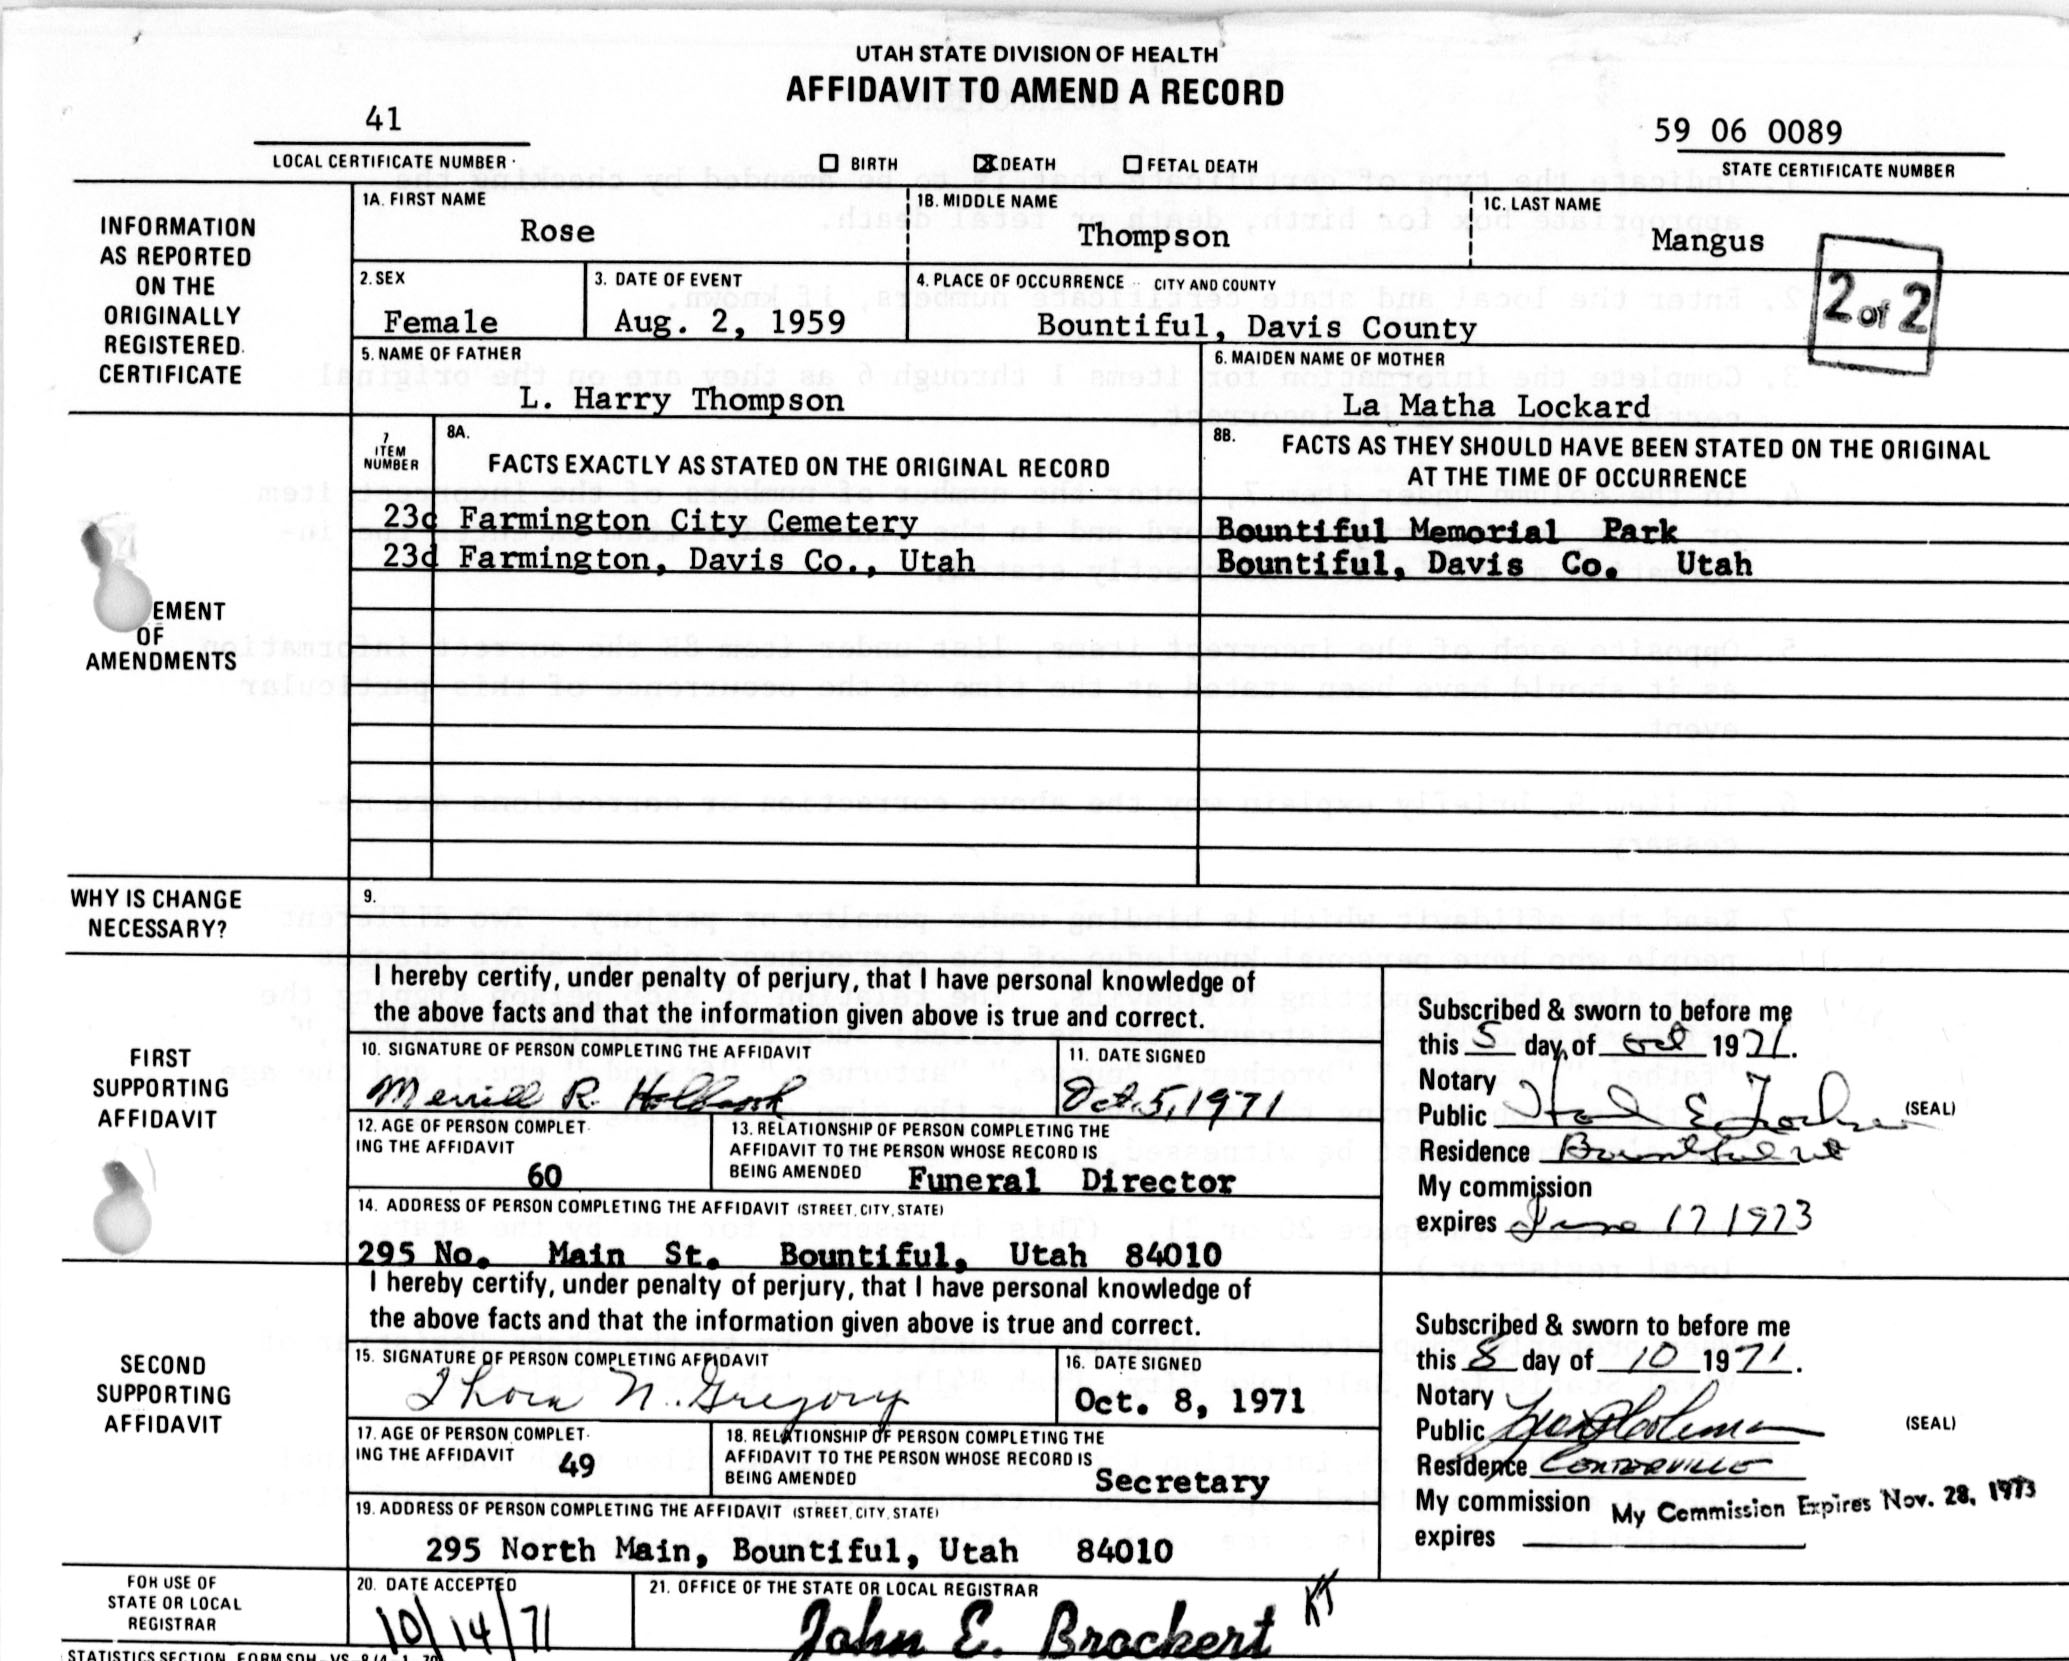 UTAH STATE DIVISION OF HEALTH
AFFIDAVIT TO AMEND A RECORD
41
LOCAL CERTIFICATE NUMBER
BIRTH
DEATH
FETAL DEATH
59 06 0089
STATE CERTIFICATE NUMBER
INFORMATION
AS REPORTED
ON THE
ORIGINALLY
REGISTERED
CERTIFICATE
1A. FIRST NAME
Rose
1B. MIDDLE NAME
Thompson
1C. LAST NAME
Mangus
2 of 2
2. SEX
Female
3. DATE OF EVENT
Aug. 2, 1959
4. PLACE OF OCCURRENCE CITY AND COUNTY
Bountiful, Davis County
5. NAME OF FATHER
L. Harry Thompson
6. MAIDEN NAME OF MOTHER
La Matha Lockard
EMENT
OF
AMENDMENTS
7
ITEM
NUMBER
8A.
FACTS EXACTLY AS STATED ON THE ORIGINAL RECORD
8B.
FACTS AS THEY SHOULD HAVE BEEN STATED ON THE ORIGINAL
AT THE TIME OF OCCURRENCE
23c Farmington City Cemetery
Bountiful Memorial Park
23d Farmington, Davis Co., Utah
Bountiful, Davis Co. Utah
WHY IS CHANGE
NECESSARY?
9.
FIRST
SUPPORTING
AFFIDAVIT
I hereby certify, under penalty of perjury, that I have personal knowledge of
the above facts and that the information given above is true and correct.
10. SIGNATURE OF PERSON COMPLETING THE AFFIDAVIT
Merrill R. Holbrook
11. DATE SIGNED
Oct. 5, 1971
12. AGE OF PERSON COMPLET-
ING THE AFFIDAVIT
60
13. RELATIONSHIP OF PERSON COMPLETING THE
AFFIDAVIT TO THE PERSON WHOSE RECORD IS
BEING AMENDED Funeral Director
14. ADDRESS OF PERSON COMPLETING THE AFFIDAVIT (STREET, CITY, STATE)
295 No. Main St. Bountiful, Utah 84010
Subscribed & sworn to before me
this 5 day of Oct 1971.
Notary
Public (SEAL)
Residence Bountiful ut
My commission
expires June 17 1973
SECOND
SUPPORTING
AFFIDAVIT
I hereby certify, under penalty of perjury, that I have personal knowledge of
the above facts and that the information given above is true and correct.
15. SIGNATURE OF PERSON COMPLETING AFFIDAVIT
Thora N. Gregory
16. DATE SIGNED
Oct. 8, 1971
17. AGE OF PERSON COMPLET-
ING THE AFFIDAVIT 49
18. RELATIONSHIP OF PERSON COMPLETING THE
AFFIDAVIT TO THE PERSON WHOSE RECORD IS
BEING AMENDED Secretary
19. ADDRESS OF PERSON COMPLETING THE AFFIDAVIT (STREET, CITY, STATE)
295 North Main, Bountiful, Utah 84010
Subscribed & sworn to before me
this 8 day of 10 1971.
Notary
Public (SEAL)
Residence Centerville
My commission My Commission Expires Nov. 28, 1973
expires
FOR USE OF
STATE OR LOCAL
REGISTRAR
20. DATE ACCEPTED
10/14/71
21. OFFICE OF THE STATE OR LOCAL REGISTRAR
John E. Brockert
STATISTICS SECTION FORM SDH-VS-